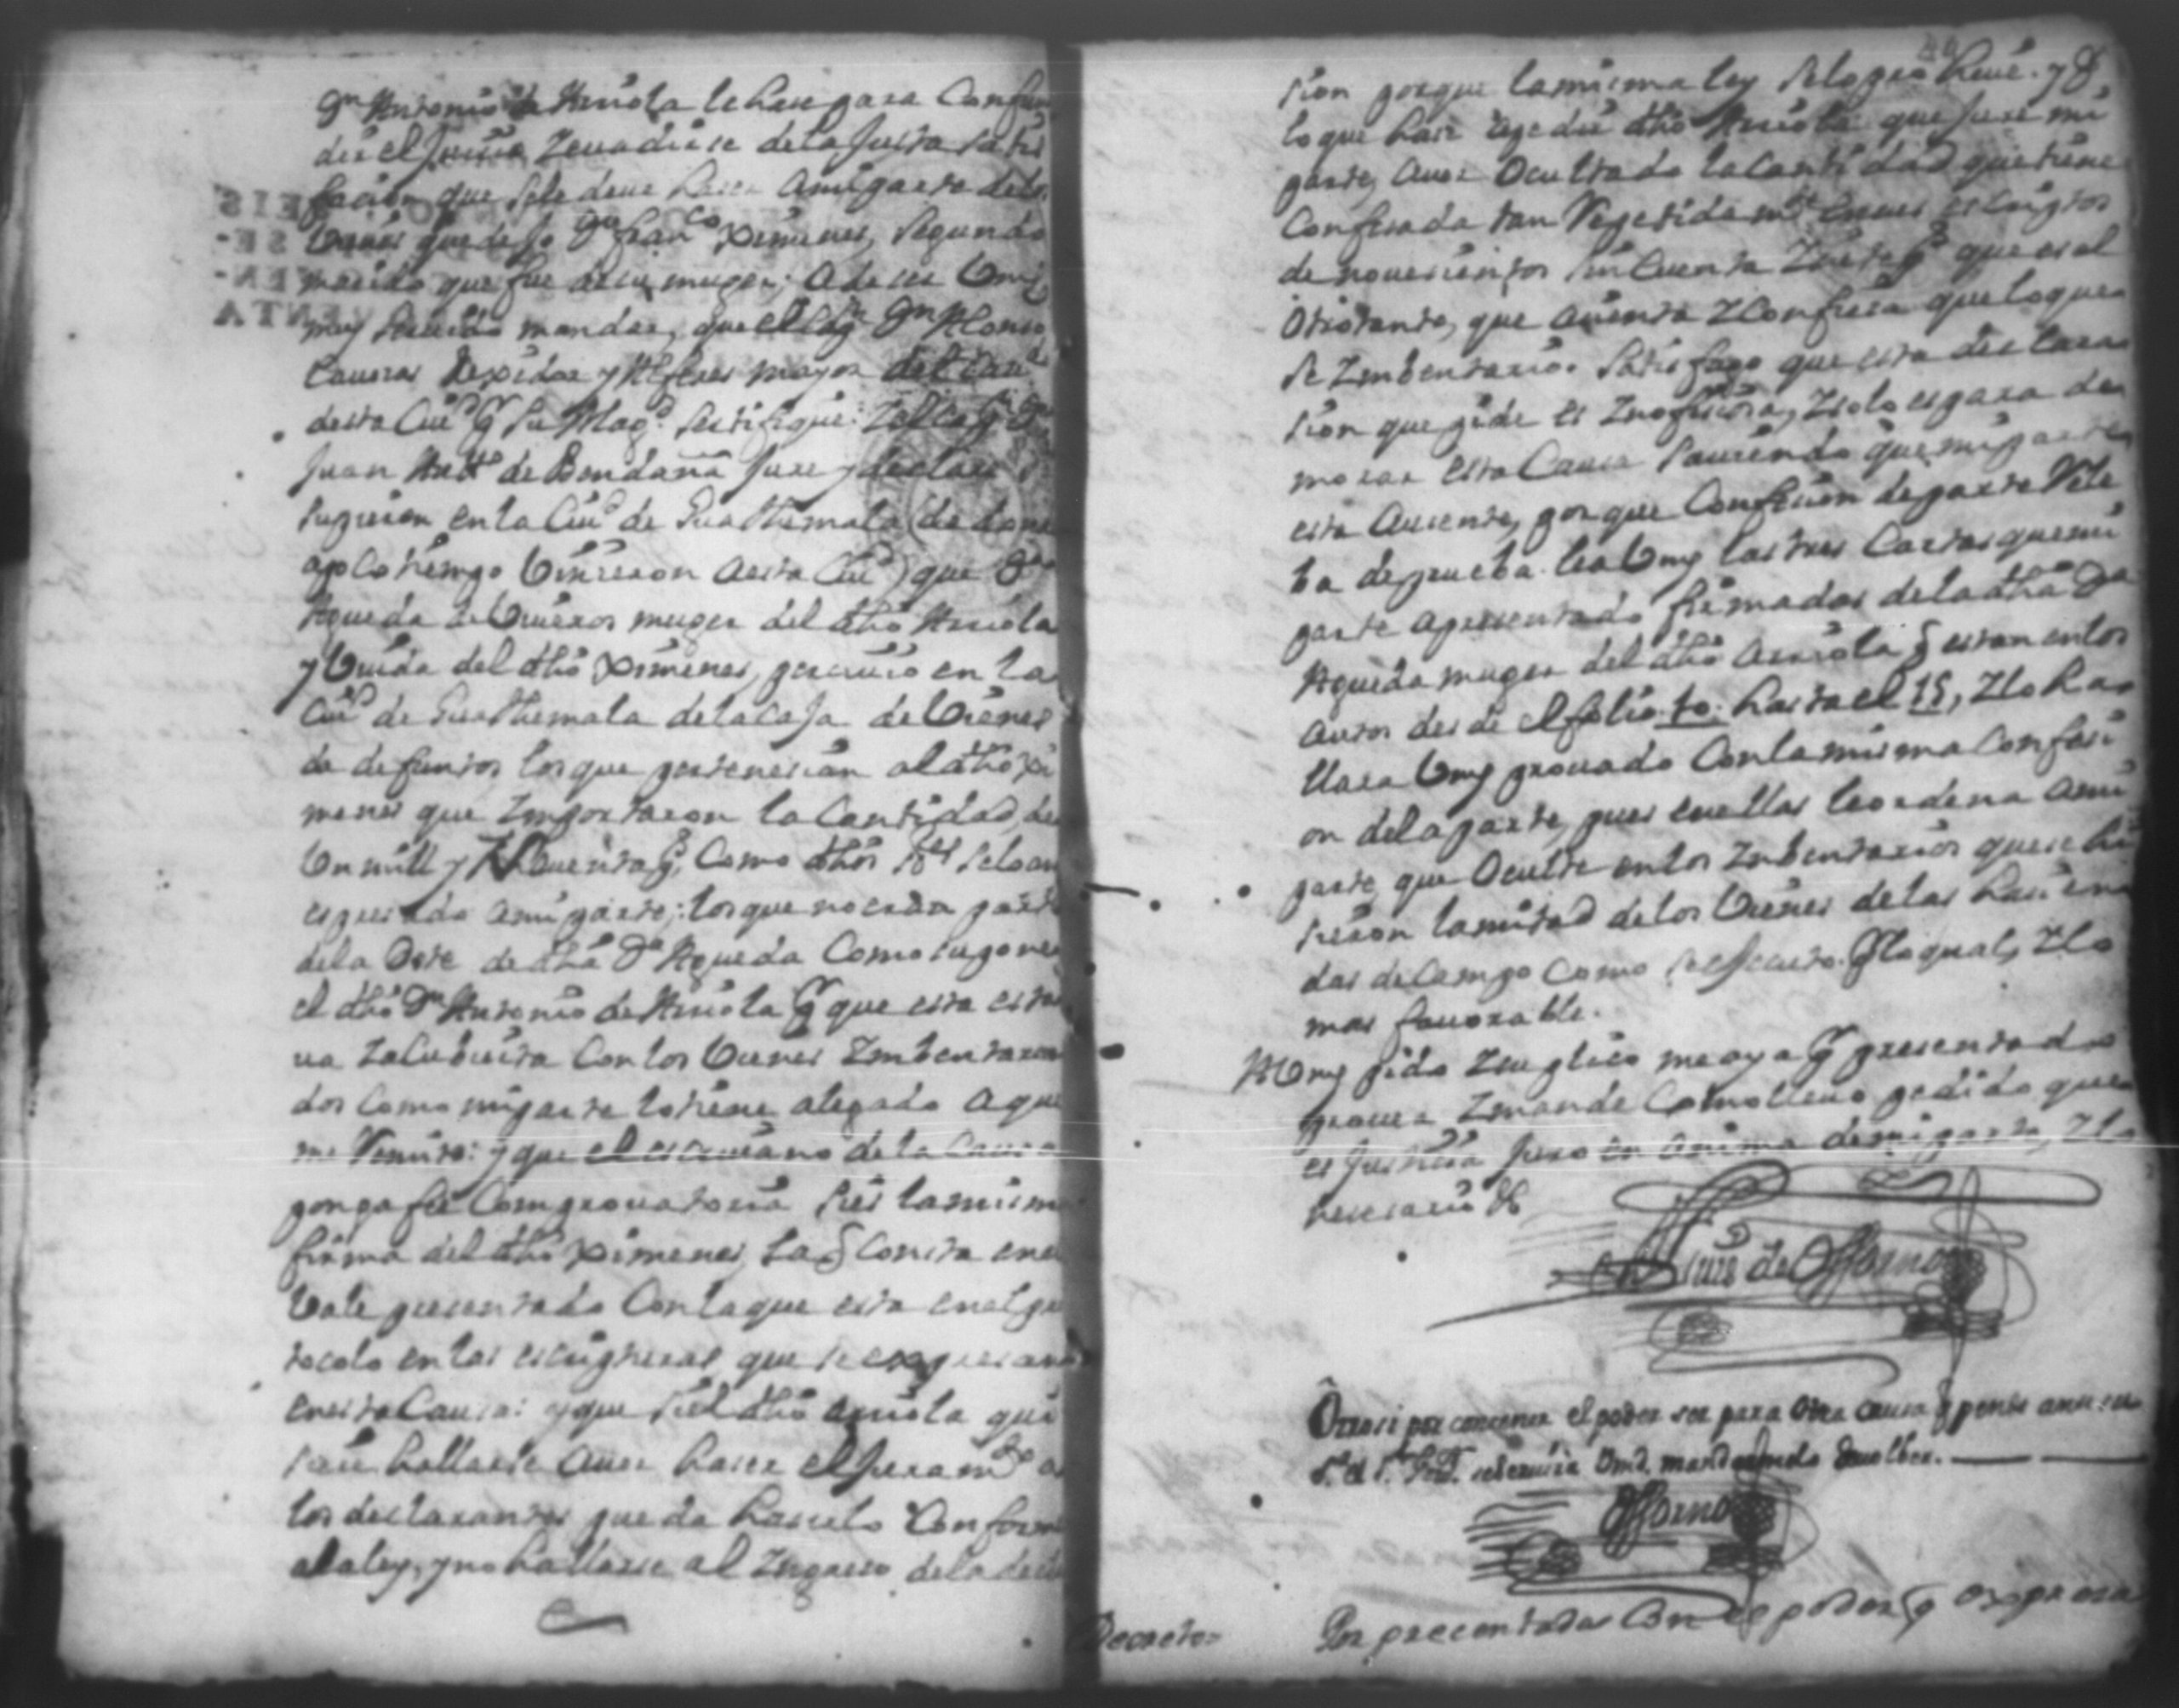 Dn Antonio de Arriola le hase para Confun
dir el Juicio Z euadirse de la Justa satis
facion que se le deue haser a mi parte de los
Vienes que dejo Dn Franco Ximenes, segundo
marido que fue de su muger; a de ser Vmd
muy seruido mandar, que el Capn Dn Alonso
Caueras Rexidor y Alferes mayor
desta Ciud Pr Su Magd. Sertifique: Z el Capn Dn
Juan Antto de Bendaña Jure y declare si
supieron en la Ciud de Guathemala (de donde
a poco tiempo Vinieron a esta Ciud) que Da
Agueda de muger del dho Arriola
y Viuda del dho Ximenes, perciuio en la
Ciud de Guathemala de la Caja de Vienes
de defuntos los que pertenesian al dho Xi
menes que Importaron la Cantidad de
Vn mill y Ps, Como dhos Res se lo an
espresado a mi parte; los que no eran parte
de la Dote de dha Da Agueda Como supone
el dho Dn Antonio de Arriola Pr que esta esta
ua Z a Cubierta Con los Vienes Imbentaria
dos Como mi parte lo tiene alegado a que
me Remito: y que el escriuano de la Causa
ponga fee Comprouatoria si es la misma
firma del dho Ximenes, la q Consta en el
Vale presentado Con la que esta en el pro
tocolo en las escripturas que se expresaron
en esta Causa: y que si el dho Arriola qui
siere hallarse a uer haser el Juramto a
los declarantes pueda haserlo Conforme
a la ley, y no hallarse al Ingreso de la decla
sion porque la misma ley se lo prohiue. y a
lo que hase repedir dho Arriola que Jure mi
parte, auer Ocultado la Cantidad que tiene
Confesada tan Repetidamte en sus escriptos
de nouesientos sinCuenta Z siete ps que es al
Otro tanto, que asienta Z Confiesa que lo que
se Imbentario. Satisfago que esta declara
sion que pide es Inofisiosa, Z solo es para de
morar esta Causa sauiendo que mi parte
esta Ausente, porque Confesion de parte Rele
ba de prueba. Vea Vmd las tres Cartas que mi
parte a presentado firmadas de la dha Da
Agueda muger del dho Arriola q estan en los
autos desde el folio 10. hasta el 15, Z lo ha
llara Vmd prouado Con la misma Confesi
on de la parte, pues en ellas le ordena a mi
parte, que Oculte en los Imbentarios que se hi
sieron la mitad de los Vienes de las hasien
das de Campo Como se efectuo. Pr lo qual, Z lo
mas fauorable.
A Vmd pido Z suplico me aya Pr presentado
prouea Z mande Como lleuo pedido que
es Justisia Juro en anima de mi parte, Z lo
nesesario &c
Luis de Osorno
Otrosi por contener el poder ser para otra causa
se seruira Vmd. mandarmelo deuolber.
Osorno
Decreto=
Por precentada Con el poder q expresa